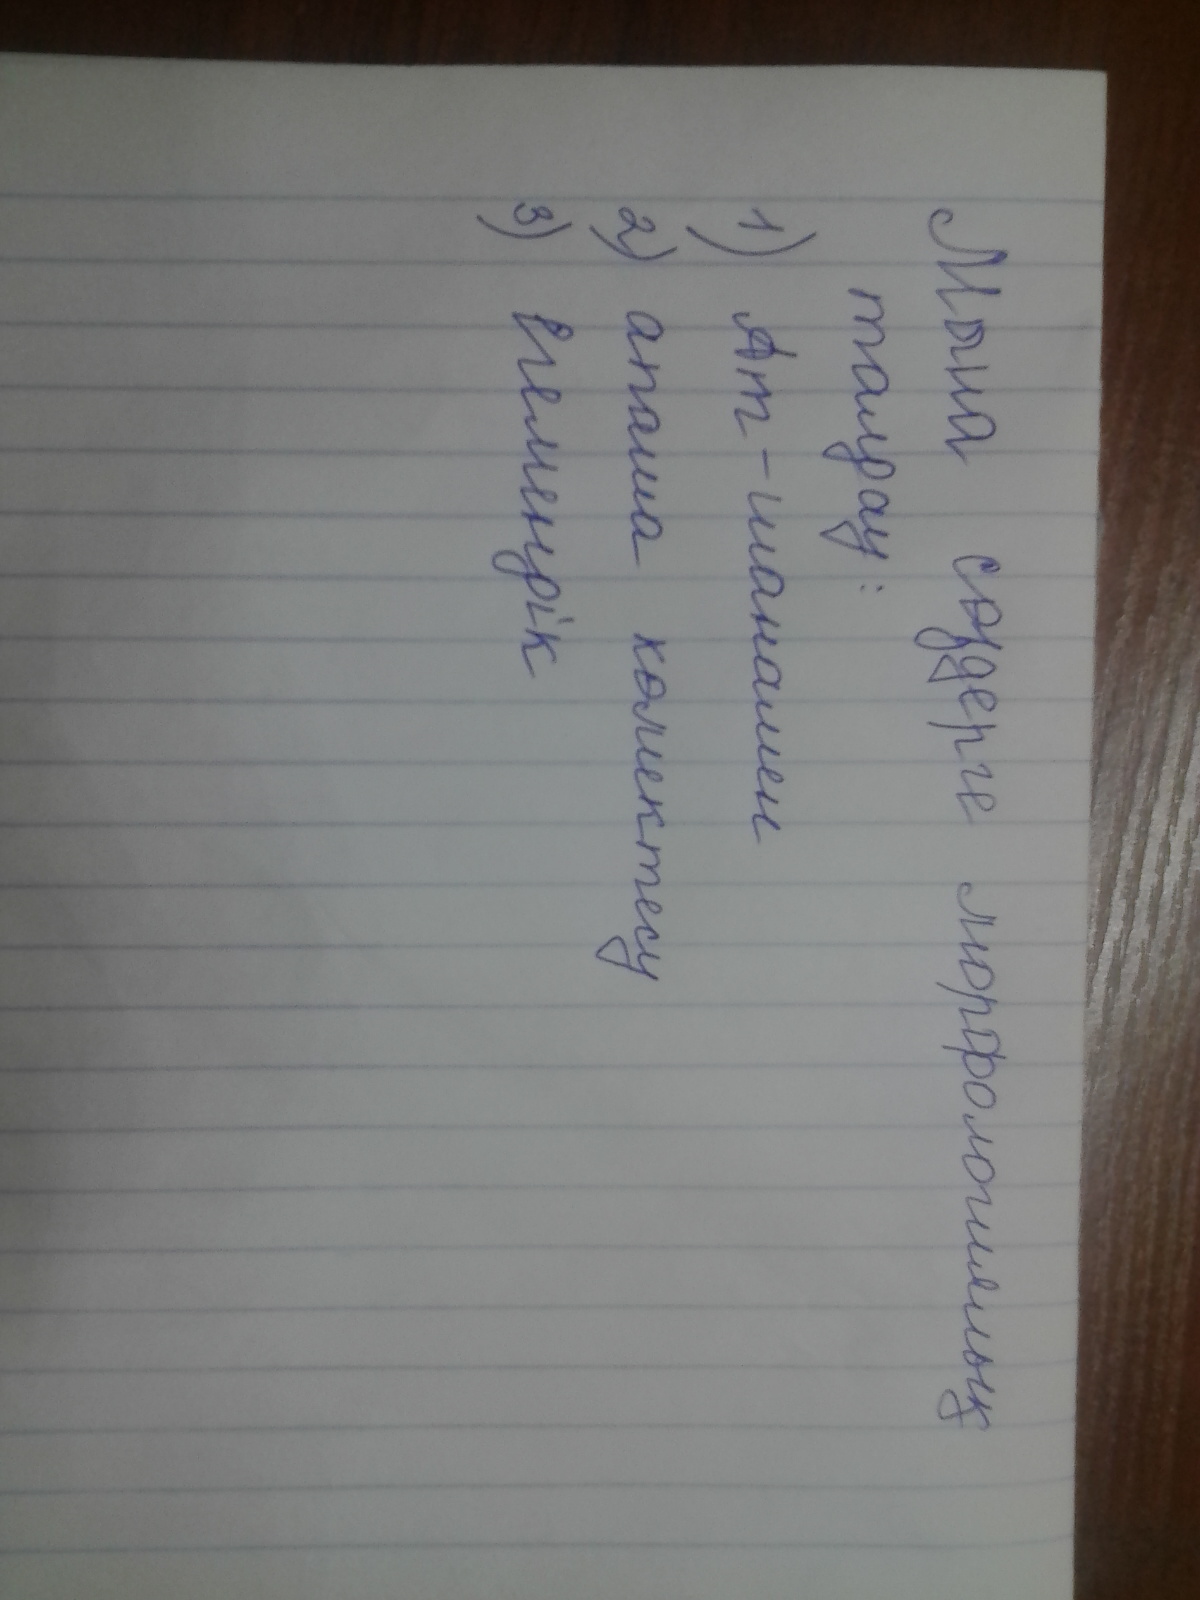 Мына сөздерге морфологиялық
талдау:
1) Ат-шанамен
2) апама көмектесу
3) Әлемдік